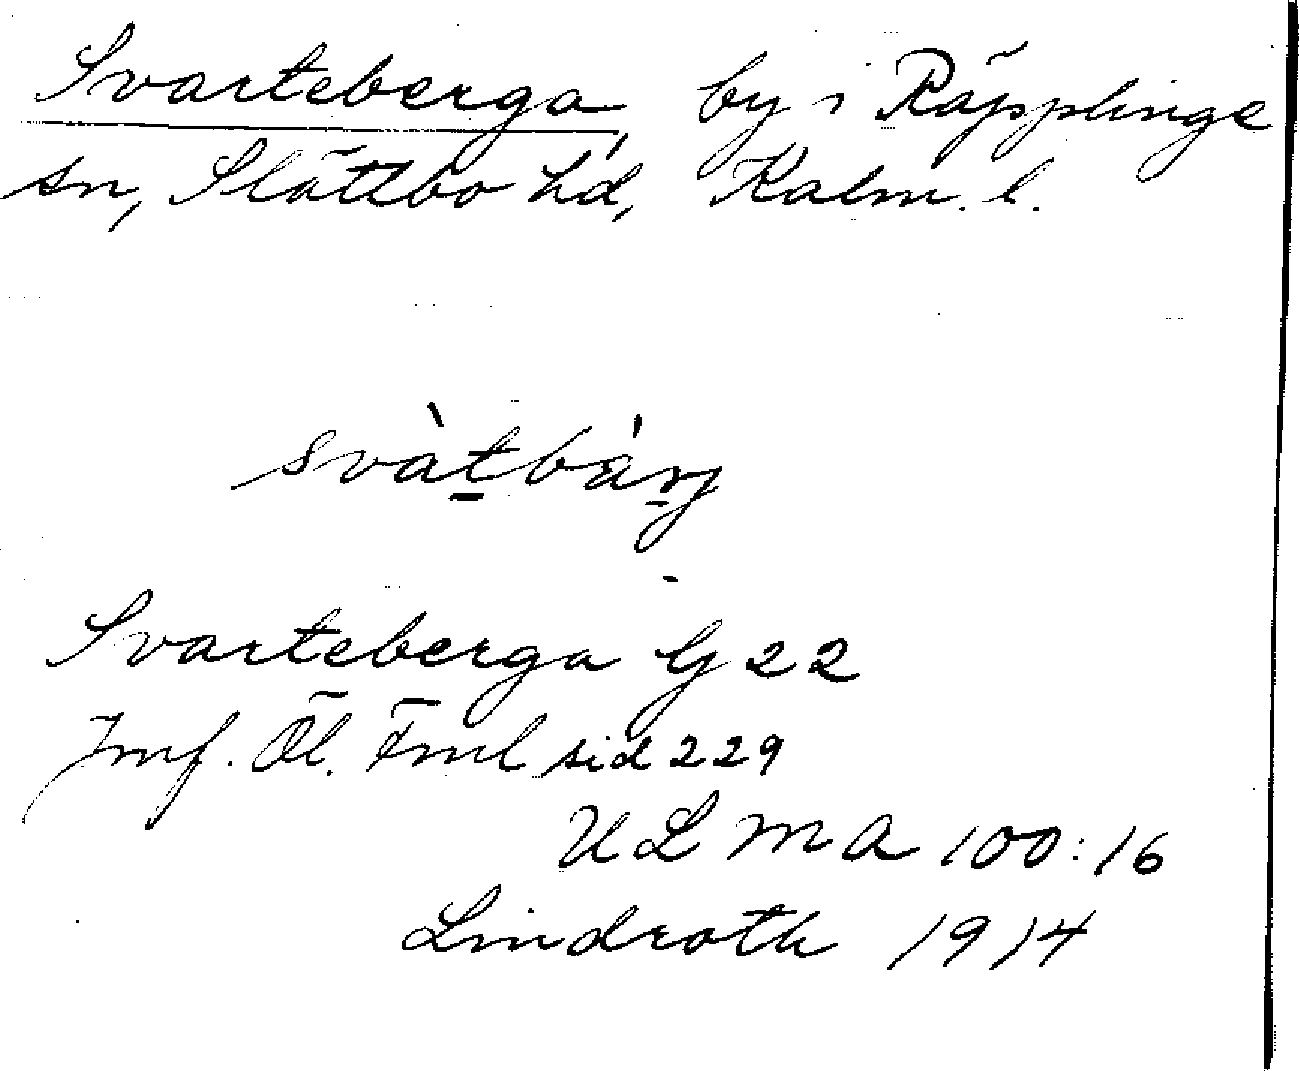 Svarteberga, by i Räpplinge
sn, Slättbo hd, Kalm. l.
svàt̲bàr̲j
Svarteberga G 22
Jmf. Öl. Fml sid 229
ULMA 100:16
Lindroth 1914